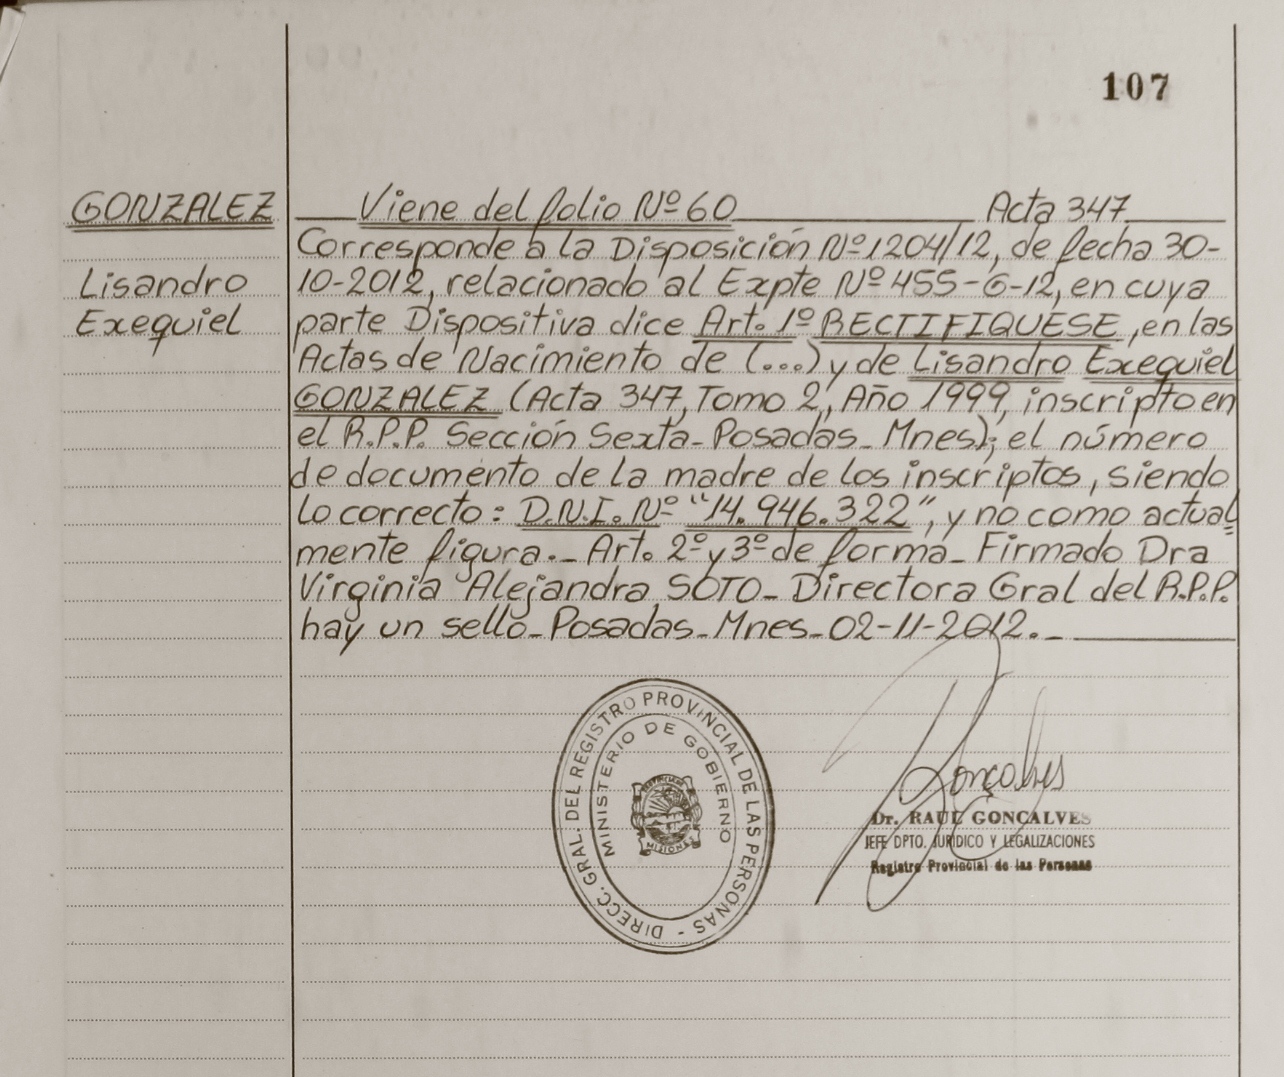 107
GONZALEZ
Lisandro
Exequiel
Viene del folio Nº 60 Acta 347
Corresponde a la Disposición Nº 1204/12, de fecha 30-
10-2012, relacionado al Expte Nº 455-G-12, en cuya
parte Dispositiva dice Art. 1º RECTIFIQUESE, en las
Actas de Nacimiento de (...) y de Lisandro Exequiel
GONZALEZ (Acta 347, Tomo 2, Año 1999, inscripto en
el R.P.P. Sección Sexta-Posadas-Mnes); el número
de documento de la madre de los inscriptos, siendo
lo correcto: D.N.I. Nº "14.946.322", y no como actual=
mente figura.- Art. 2º y 3º de forma- Firmado Dra
Virginia Alejandra SOTO- Directora Gral del R.P.P.
hay un sello- Posadas- Mnes- 02-11-2012.-
DIRECC. GRAL. DEL REGISTRO PROVINCIAL DE LAS PERSONAS -
MINISTERIO DE GOBIERNO
MISIONES
Gonçalves
Dr. RAUL GONCALVES
JEFE DPTO. JURIDICO Y LEGALIZACIONES
Registro Provincial de las Personas